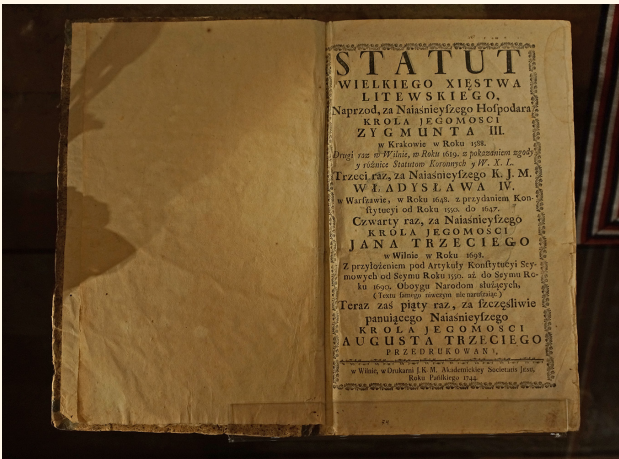 STATUT
WIELKIEGO XIĘSTWA
LITEWSKIEGO.
Naprzod, za Naiaśnieyszego Hospodara
KROLA JEGOMOSCI
ZYGMUNTA III.
w Krakowie w Roku 1588.
Drugi raz w Wilnie, w Roku 1619. z pokazaniem zgody
y rożnice Statutow Koronnych y W. X. L.
Trzeci raz, za Naiaśnieyszego K. J. M.
WŁADYSŁAWA IV.
w Warszawie, w Roku 1648. z przydaniem Kon-
stytucyi od Roku 1550. do 1647.
Czwarty raz, za Naiaśnieyszego
KROLA JEGOMOSCI
JANA TRZECIEGO
w Wilnie w Roku 1693.
Z przyłożeniem pod Artykuły Konstytucyi Sey-
mowych od Seymu Roku 1550. aż do Seymu Ro-
ku 1690. Oboygu Narodom służących,
(Textu samego niwczym nie narusząiąc)
Teraz zaś piąty raz, za szczęśliwie
panuiącego Naiaśnieyszego
KROLA JEGOMOSCI
AUGUSTA TRZECIEGO
PRZEDRUKOWANY,
w Wilnie, w Drukarni J. K. M. Akademickiey Societatis Jesu,
Roku Pańskiego 1744.